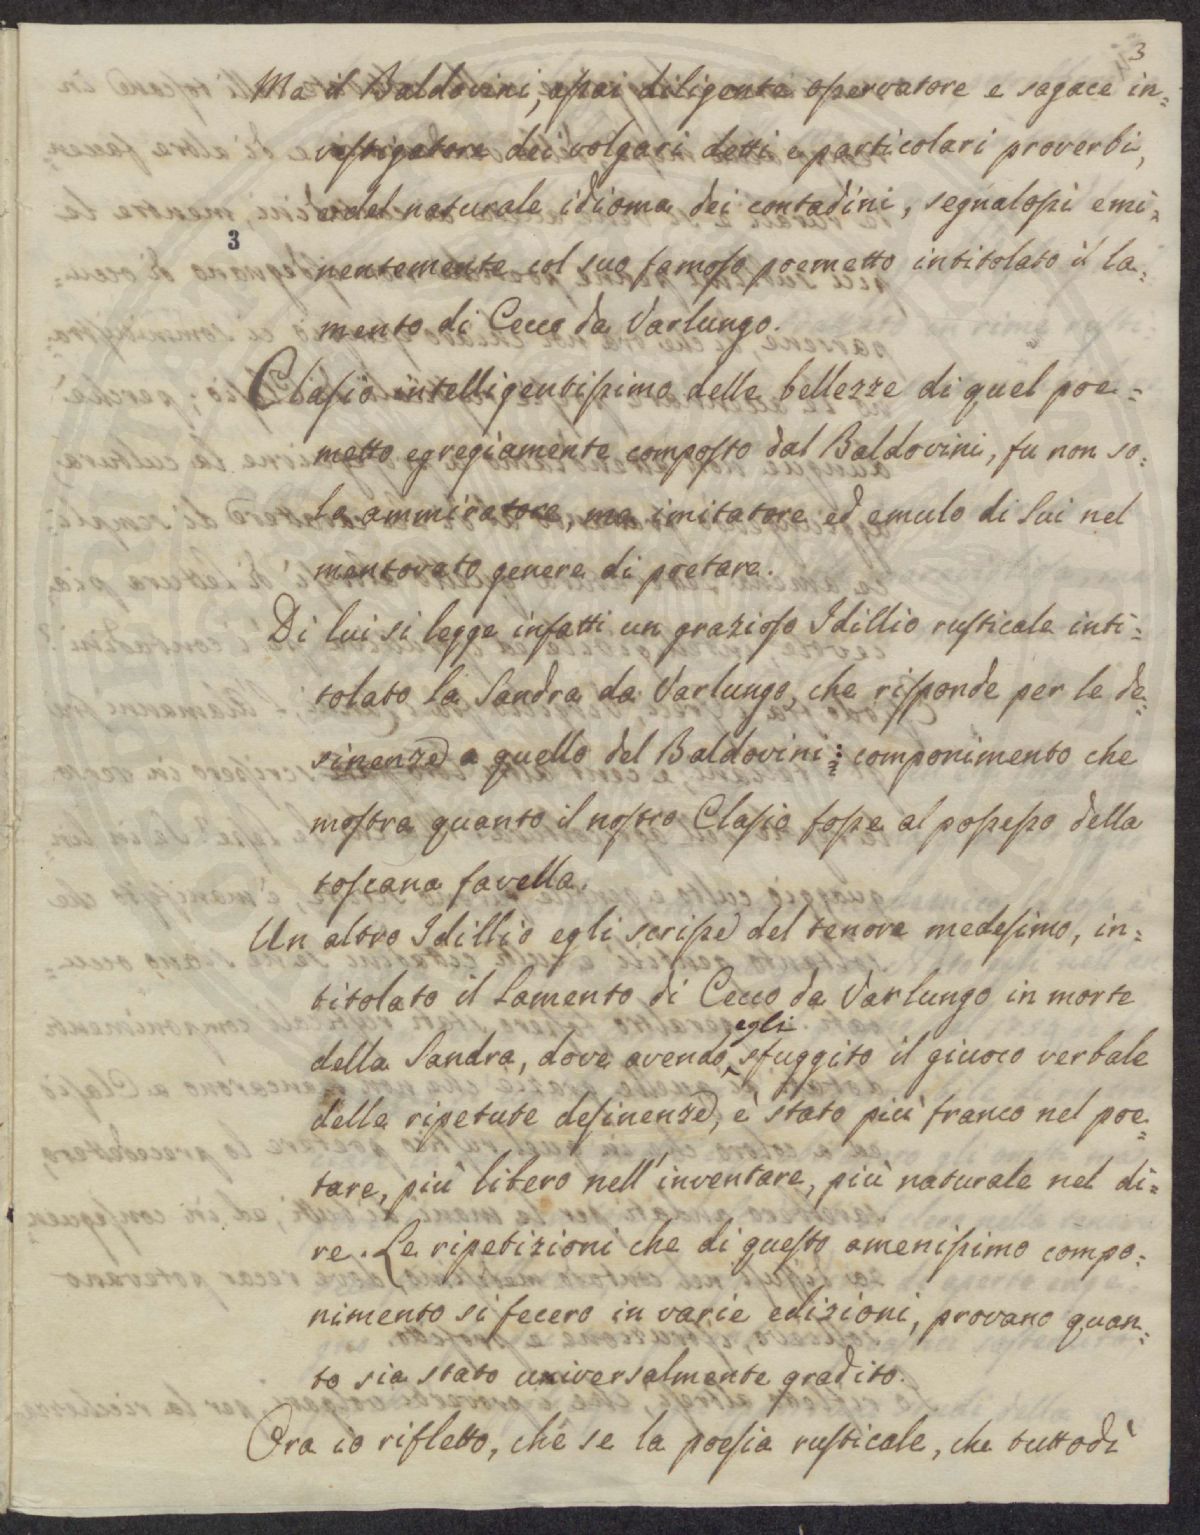 3
Ma il Baldovini, assai diligente osservatore e sagace in=
vestigatore dei volgari detti e particolari proverbi,
e del naturale idioma dei contadini, segnalossi emi=
3
nentemente col suo famoso poemetto intitolato il la=
mento di Cecco da Varlungo.
Clasio intelligentissimo delle bellezze di quel poe=
metto egregiamente composto dal Baldovini, fu non so=
lo ammiratore, ma imitatore ed emulo di Lui nel
mentovato genere di poetare.
Di lui si legge infatti un grazioso Idillio rusticale inti=
tolato la Sandra da Varlungo, che risponde per le de=
sinenze a quello del Baldovini: componimento che
mostra quanto il nostro Clasio fosse al possesso della
toscana favella.
Un altro Idillio egli scrisse del tenore medesimo, in=
titolato il Lamento di Cecco da Varlungo in morte
egli
della Sandra, dove avendo sfuggito il giuoco verbale
delle ripetute desinenze, è stato più franco nel poe=
tare, più libero nell'inventare, più naturale nel di=
re. Le ripetizioni che di questo amenissimo compo=
nimento si fecero in varie edizioni, provano quan=
to sia stato universalmente gradito.
Ora io rifletto, che se la poesia rusticale, che tuttodì